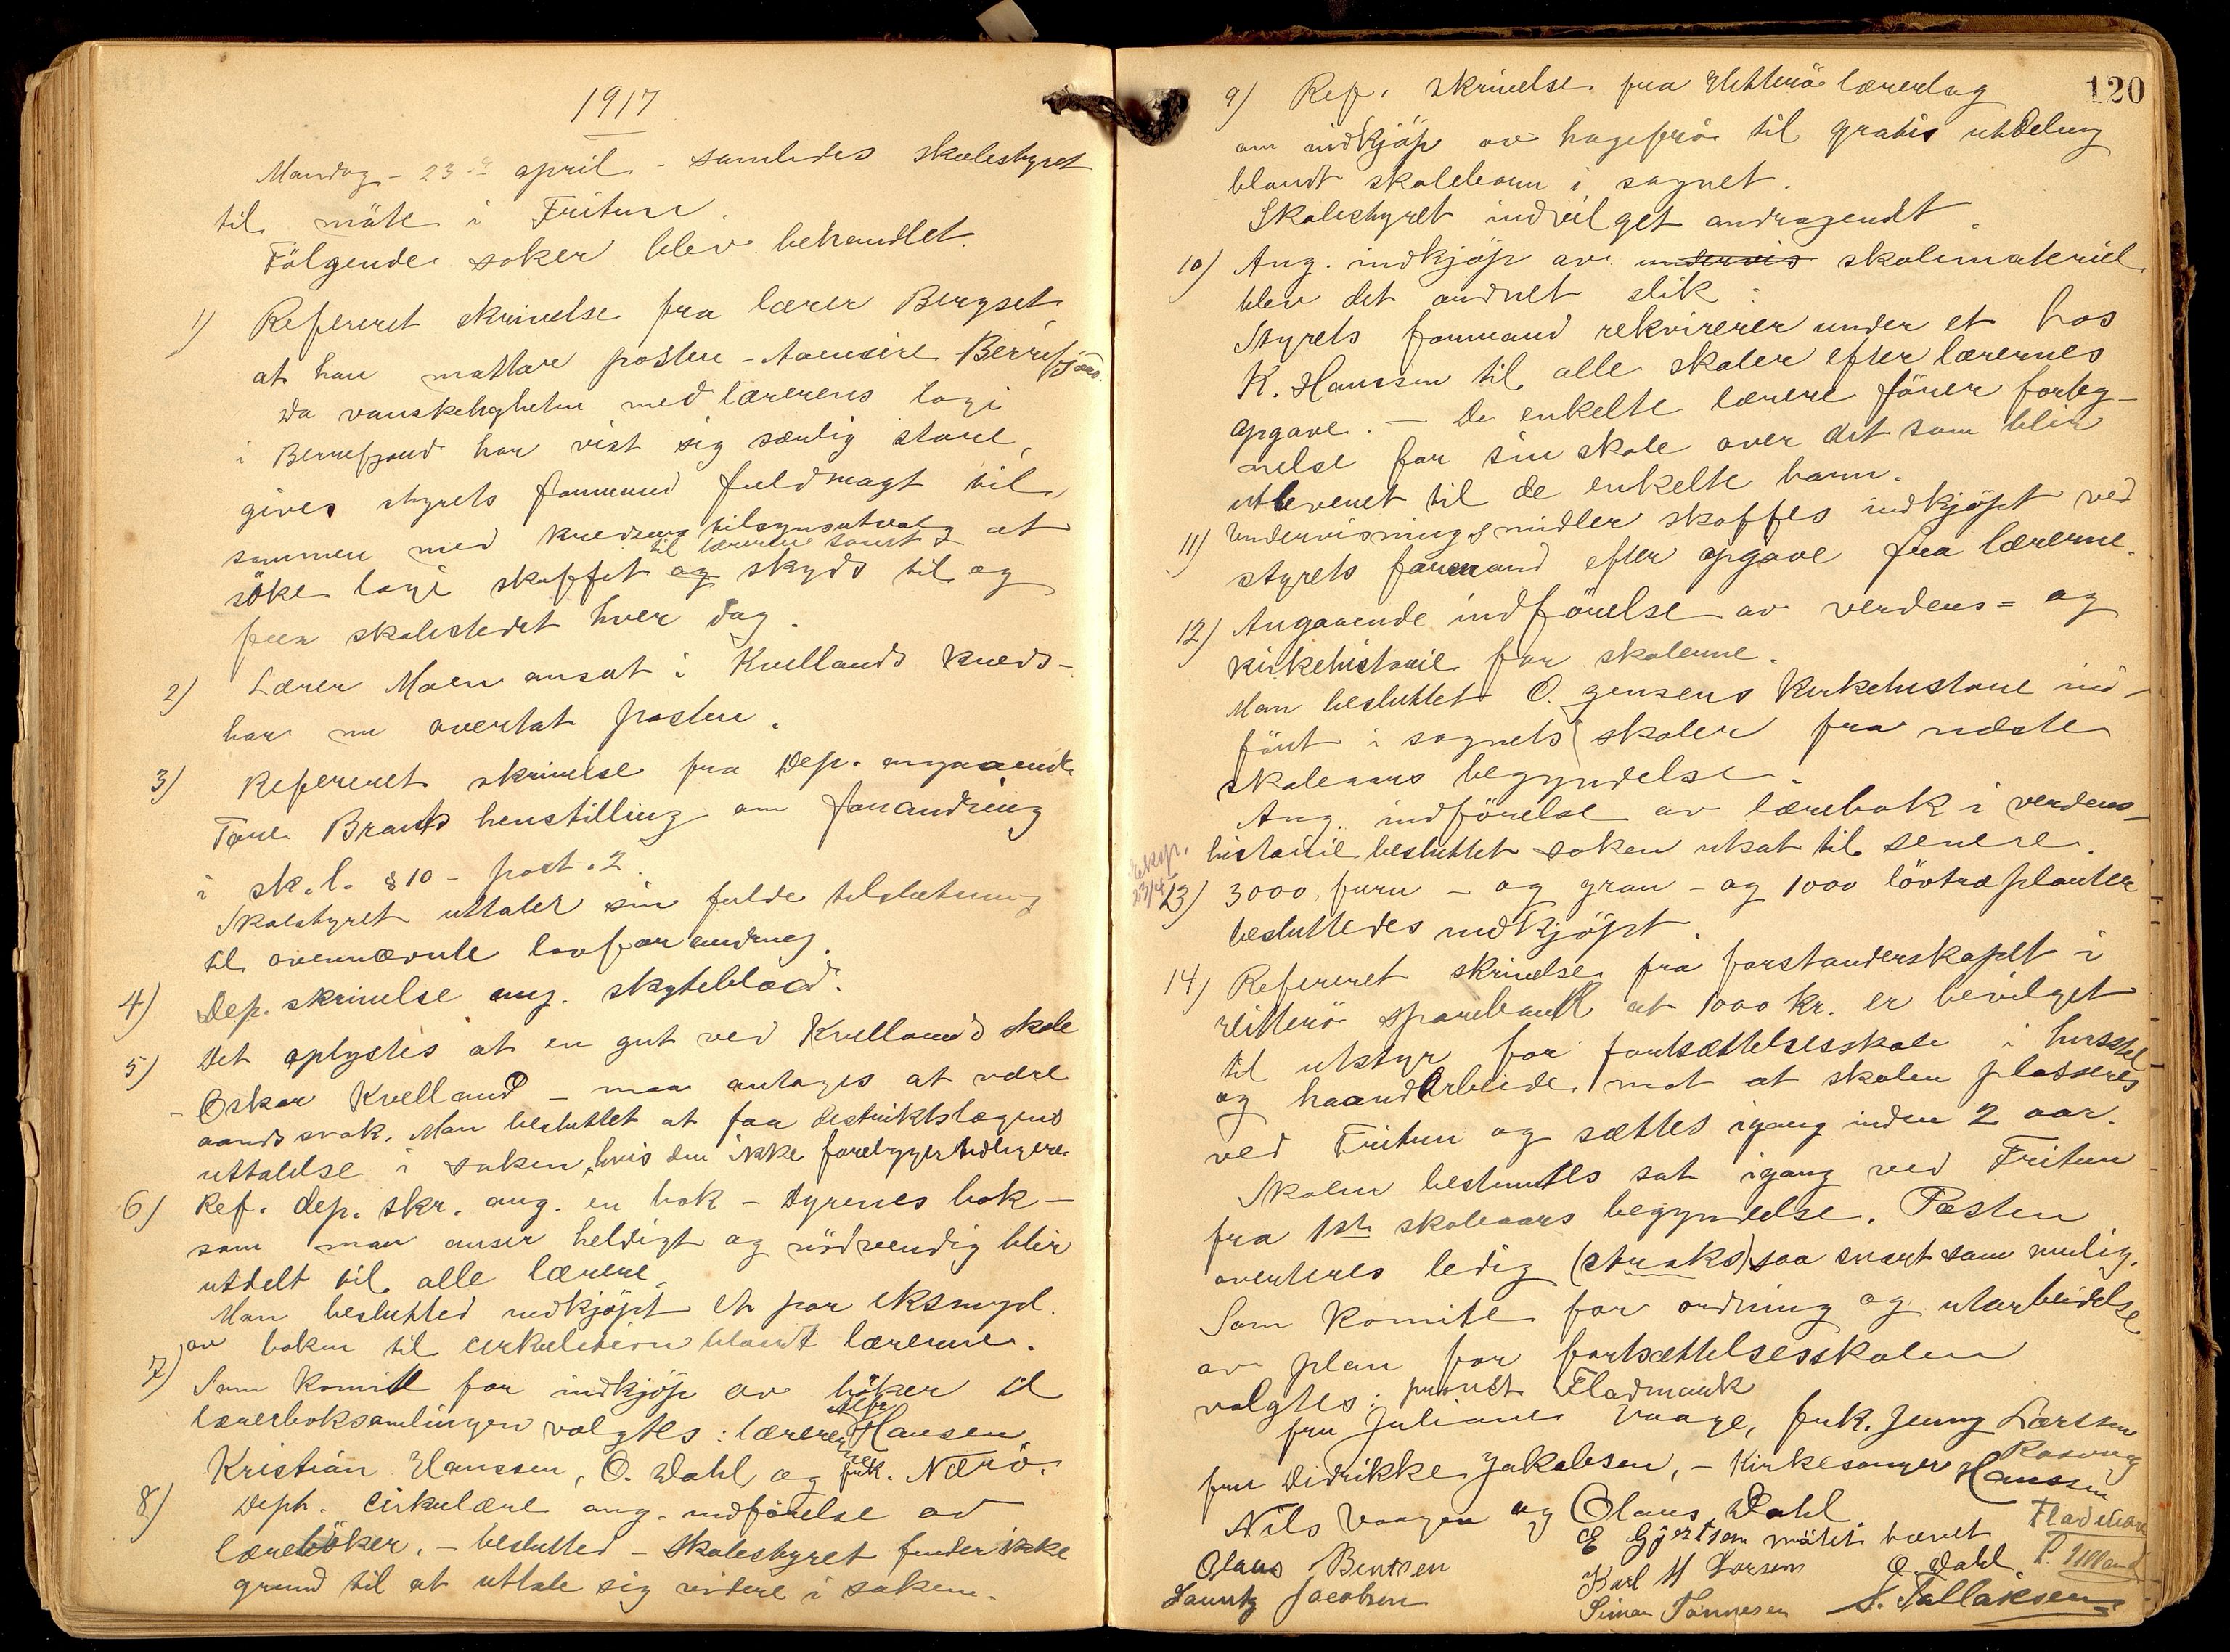 1917
Mandag - 23de april - samledes skolestyret
til möte i Fritun.
Fölgende saker blev behandlet.
1) Refereret skrivelse fra lærer Bergset
at han mottar posten - Aaensire Berrefjord.
Da vanskeligheten med lærerens logi
i Berrefjord har vist sig særlig store,
gives styrets formand fuldmagt til
sammen med kredsens tilsynsutvalg at
til læreren samt
söke logi skaffet og skyds til og
fra skolestedet hver dag.
2) Lærer Moen ansat i Kvellands kreds-
har nu overtat posten.
3) Refereret skrivelse fra Dep. angaaende
Tore Brauts henstilling om forandring
i sk.l. § 10 - post. 2.
Skolestyret uttaler sin fulde tilslutning
til ovennævnte lovforandring.
4) Dep. skrivelse ang. skyteblad.
5) Det oplystes at en gut ved Kvellands skole
- Oskar Kvelland - maa antages at være
aandssvak. Man besluttet at faa distriktslægens
uttalelse i saken, hvis den ikke foreligger tidligere.
6) Ref. dep. skr. ang. en bok - Dyrenes bok -
som man anser heldigt og nödvendig blir
utdelt til alle lærere.
Man beslutted indkjöpt et par eksmpl.
av boken til cirkulation blandt lærerne.
7) Som komite for indkjöp av böker til
lærerboksamlingen valgtes: lærerne Hansen,
Kristian Hanssen, O. Dahl og frk. Nærö.
8) Deph. cirkulære ang. indförelse av
læreböker. - beslutted - Skolestyret finder ikke
grund til at uttale sig videre i saken.
120
9) Ref. skrivelse fra Hitterö lærerlag
om indkjöp av hagefrö til gratis utdeling
blandt skolebarn i sognet.
Skolestyret indvilget andragendt.
10) Ang. indkjöp av undervis skolemateriel
blev det ordnet slik:
Styrets formand rekvirerer under et hos
K. Hanssen til alle skoler efter lærernes
opgave. - De enkelte lærere förer forteg-
nelse for sin skole over det som blir
utleveret til de enkelte barn.
11) Undervisningsmidler skaffes indkjöpt ved
styrets formand efter opgave fra lærerne.
12) Angaaende indförelse av verdens= og
kirkehistorie for skolerne.
Man besluttet O. Jensens Kirkehistorie ind-
fört i sognets skoler fra næste
skoleaars begyndelse.
Ang. indförelse av lærebok i verdens-
historie besluttet saken utsat til senere.
Eksp.
23/4
13) 3000 furu - og gran - og 1000 lövtræplanter
besluttedes indkjöpt.
14) Refereret skrivelse fra forstanderskapet i
Hitterö sparebank at 1000 kr. er bevilget
til utstyr for fortsættelsesskole i husstel-
og haandarbeide mot at skolen plasseres
ved Fritun og sættes igang inden 2 aar.
Skolen bestemtes sat igang ved Fritun
fra 1ste skoleaars begyndelse. Posten
averteres ledig (straks) saa snart som mulig.
Som komite for ordning og utarbeidelse
av plan for fortsættelsesskolen
valgtes: provst Fladmark
fru Juliane Vaage, frk. Jenny Larssen
Rasvag
fru Didrikke Jakobsen, - Kirkesanger Hanssen
Nils Vaagen og Olaus Dahl.
E Gjertsen mötet hævet Fladmark
Olaus Bentsen Karl H Larsen O. Dahl P. Ulland
Lauritz Jacobsen Simon Tönnesen S. Tallaksen